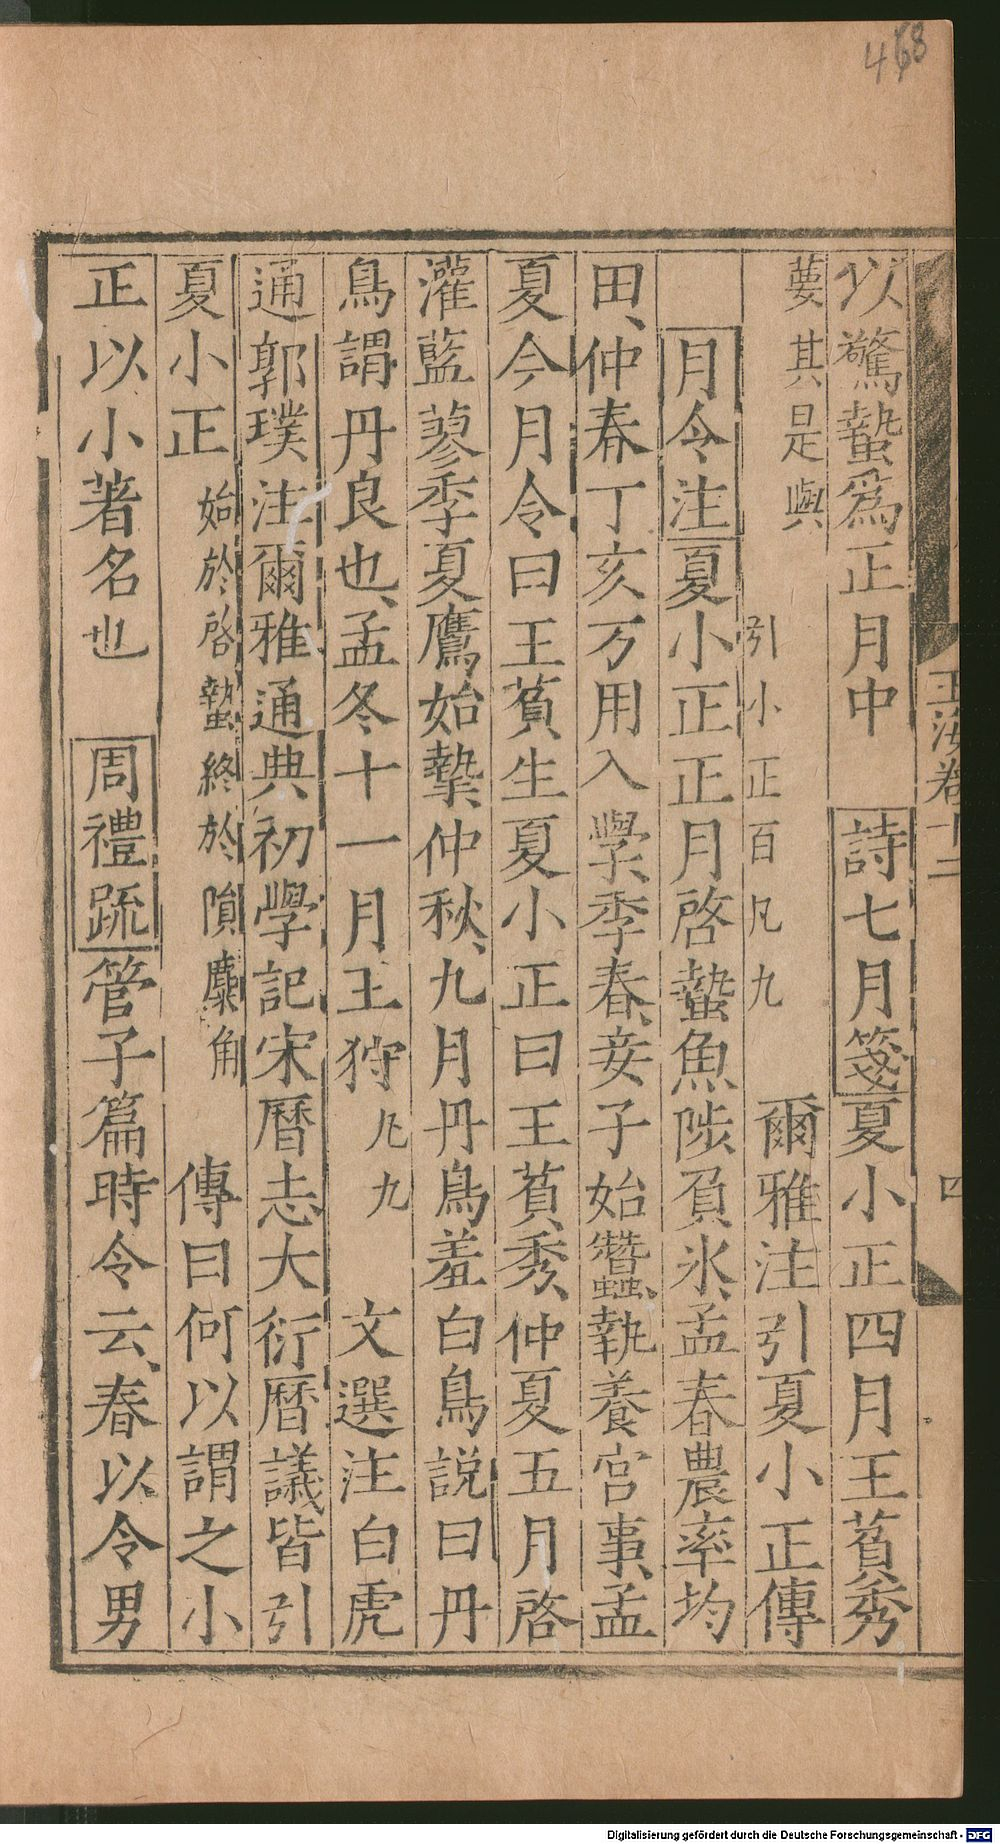 468
玉海卷十二
四
以驚蟄為正月中 詩七月箋夏小正四月王萯秀
葽其是與 引小正百凡九 爾雅注引夏小正傳
月令注夏小正正月啓蟄魚陟負氷孟春農率均
田仲春丁亥万用入學季春妾子始蠶執養宫事孟
夏今月令曰王萯生夏小正曰王萯秀仲夏五月啓
灌藍蓼季夏鷹始摯仲秋九月丹鳥羞白鳥説曰丹
鳥謂丹良也孟冬十一月王狩凡九 文選注白虎
通郭璞注爾雅通典初學記宋曆志大衍曆議皆引
夏小正 始於啓蟄終於隕麋角 傳曰何以謂之小
正以小著名也 周禮疏管子篇時令云春以令男
Digitalisierung gefördert durch die Deutsche Forschungsgemeinschaft - DFG